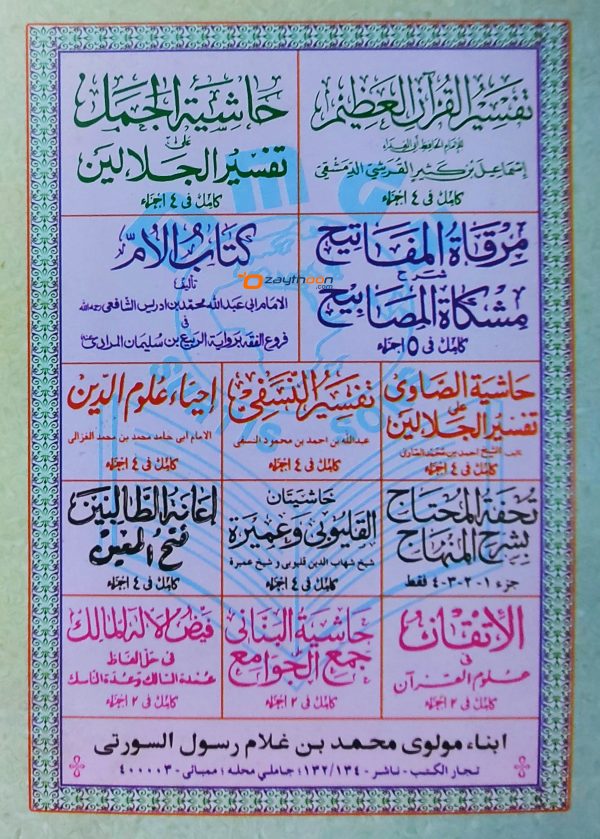 تفسير القرآن العظيم
للإمام الحافظ أبو الفداء
إسماعيل بن كثير القرشي الدمشقي
كامل في ٤ اجزاء
حاشية الجمل
على
تفسير الجلالين
كامل في ٤ اجزاء
مرقاة المفاتيح
شرح
مشكاة المصابيح
كامل في ٥ اجزاء
كتاب الأم
تأليف
الامام ابى عبدالله محمد بن ادريس الشافعى رحمه الله
فى
فروع الفقه برواية الربيع بن سليمان المرادى
zaythoon
.com
حاشية الصاوى
على
تفسير الجلالين
الشيخ احمد بن محمد الصاوى
كامل في ٤ اجزاء
تفسير النسفى
عبدالله بن احمد بن محمود النسفى
كامل في ٤ اجزاء
احياء علوم الدين
الامام ابى حامد محمد بن محمد الغزالى
كامل في ٤ اجزاء
تحفة المحتاج
بشرح المنهاج
جزء ١-٢-٣-٤ فقط
حاشيتان
القليوبى وعميرة
شيخ شهاب الدين قليوبى و شيخ عميرة
كامل في ٤ اجزاء
اعانة الطالبين
فتح المعين
كامل في ٤ اجزاء
الإتقان
فى
علوم القرآن
كامل في ٢ اجزاء
حاشية البنانى
جمع الجوامع
كامل في ٢ اجزاء
فيض الاله المالك
فى حل الفاظ
عمدة السالك وعدة الناسك
كامل في ٢ اجزاء
ابناء مولوى محمد بن غلام رسول السورتى
تجار الكتب - ناشر - ١٣٢/١٣٤؛ جاملي محله؛ ممبائى - ٤٠٠٠٠٣